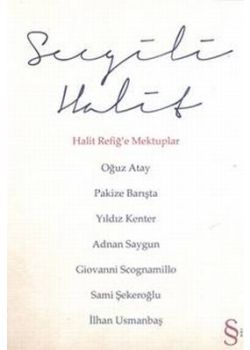 Sevgili
Halit
Halit Refiğ'e Mektuplar
Oğuz Atay
Pakize Barışta
Yıldız Kenter
Adnan Saygun
Giovanni Scognamillo
Sami Şekeroğlu
İlhan Usmanbaş